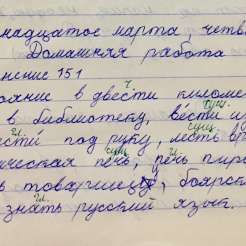 надцатое марта, четв
Домашняя работа
нение 151
ч.
ояние в двести киломе
сущ.
в библиотеку, вести из
гл. сущ.
ести под руку, лесть вр
сущ. гл.
ическая печь, печь пиро
ь товарищу, боярск
гл.
знать русский язык.